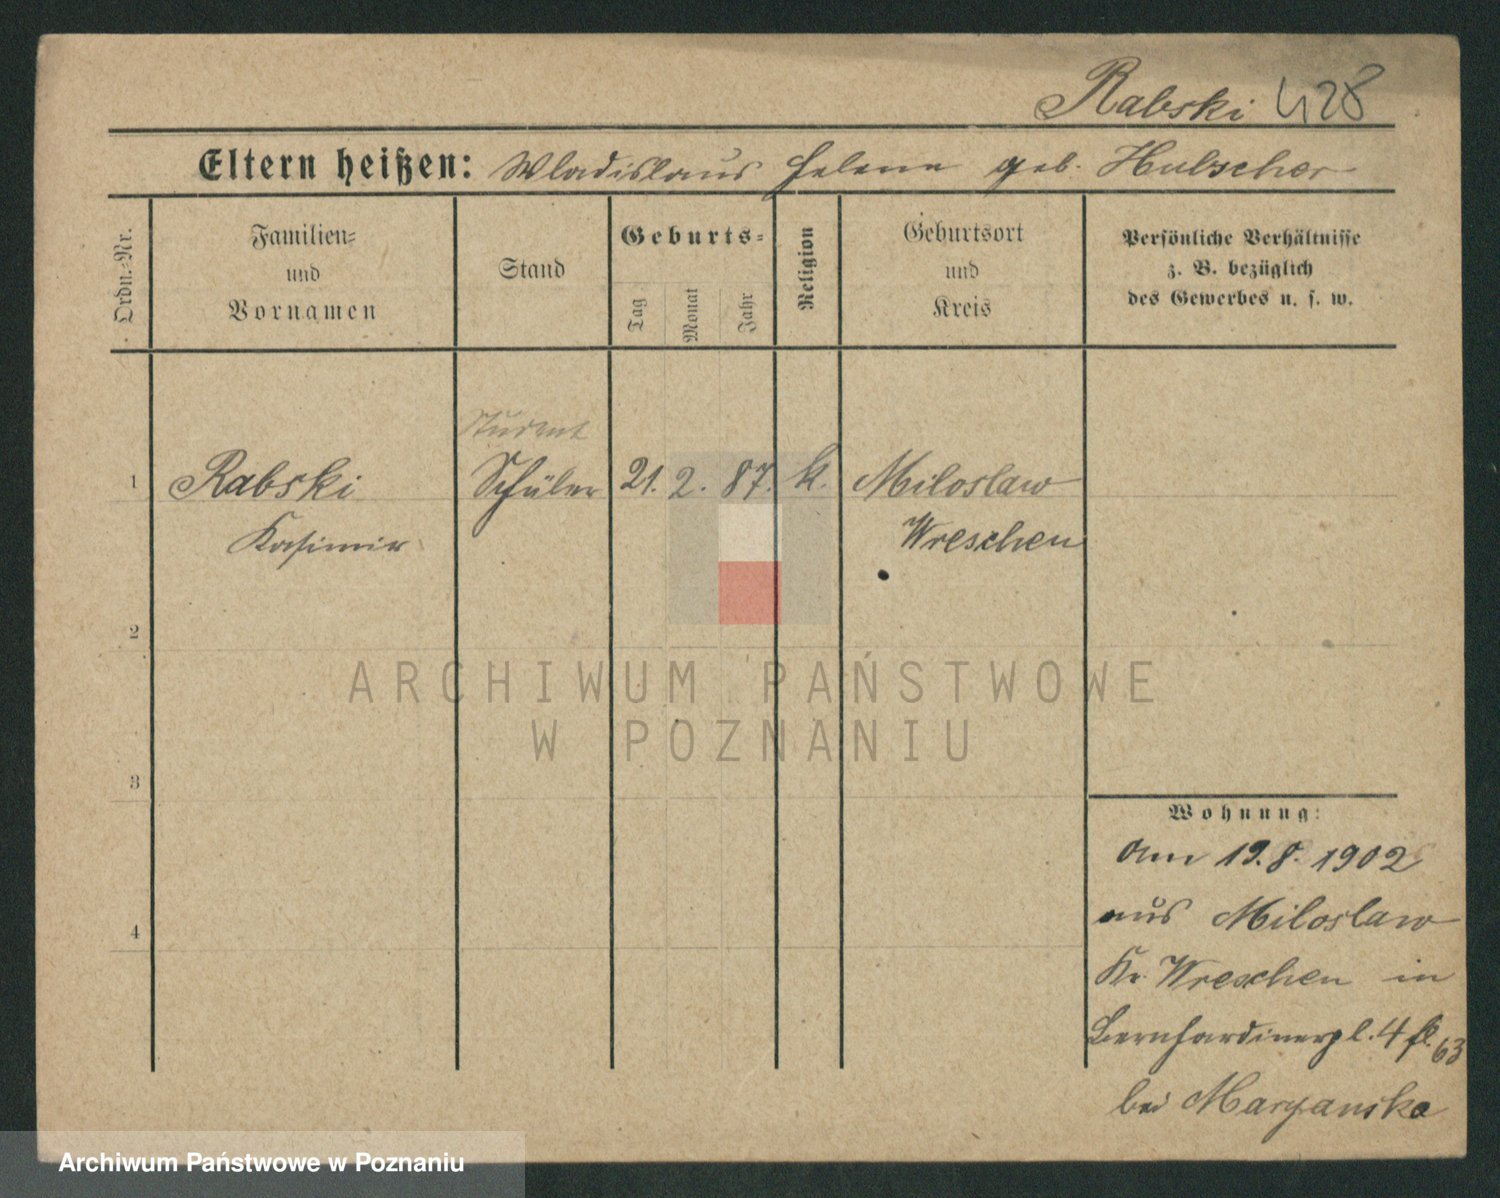 Rabski 428
Eltern heißen: Wladislaus Helene geb. Hulscher
Ordn.-Nr.
Familien-
und
Vornamen
Stand
Geburts-
Tag
Monat
Jahr
Religion
Geburtsort
und
Kreis
Persönliche Verhältnisse
z. B. bezüglich
des Gewerbes u. s. w.
Student
1 Rabski Schüler 21. 2. 87. k. Miloslaw
Kasimir Wreschen
2
ARCHIWUM PAŃSTWOWE
W POZNANIU
3
Wohnung:
Am 19.8.1902
aus Miloslaw
4
Kr. Wreschen in
Bernhardinerpl. 4 63
bei Maryanska
Archiwum Państwowe w Poznaniu